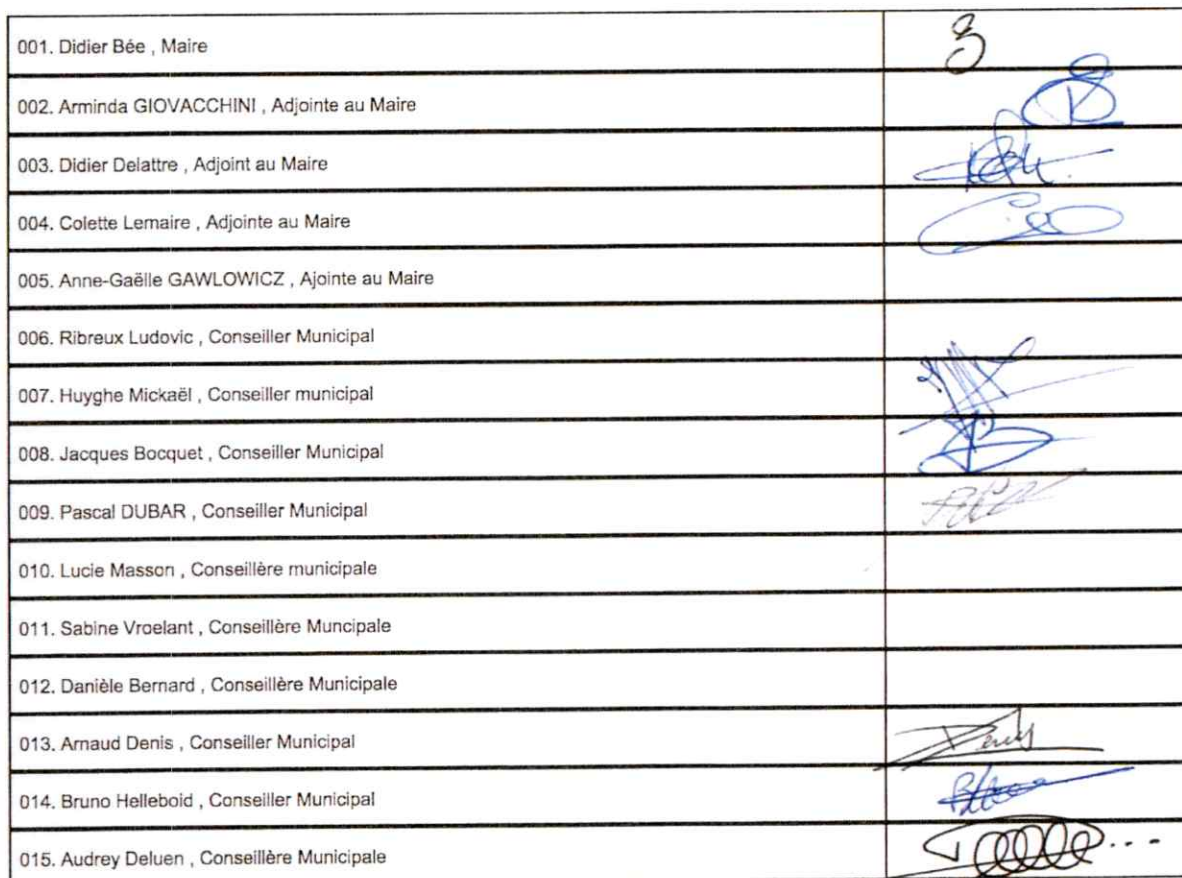 001. Didier Bée , Maire
002. Arminda GIOVACCHINI , Adjointe au Maire
003. Didier Delattre , Adjoint au Maire
004. Colette Lemaire , Adjointe au Maire
005. Anne-Gaëlle GAWLOWICZ , Ajointe au Maire
006. Ribreux Ludovic , Conseiller Municipal
007. Huyghe Mickaël , Conseiller municipal
008. Jacques Bocquet , Conseiller Municipal
009. Pascal DUBAR , Conseiller Municipal
010. Lucie Masson , Conseillère municipale
011. Sabine Vroelant , Conseillère Muncipale
012. Danièle Bernard , Conseillère Municipale
013. Arnaud Denis , Conseiller Municipal
014. Bruno Helleboid , Conseiller Municipal
015. Audrey Deluen , Conseillère Municipale